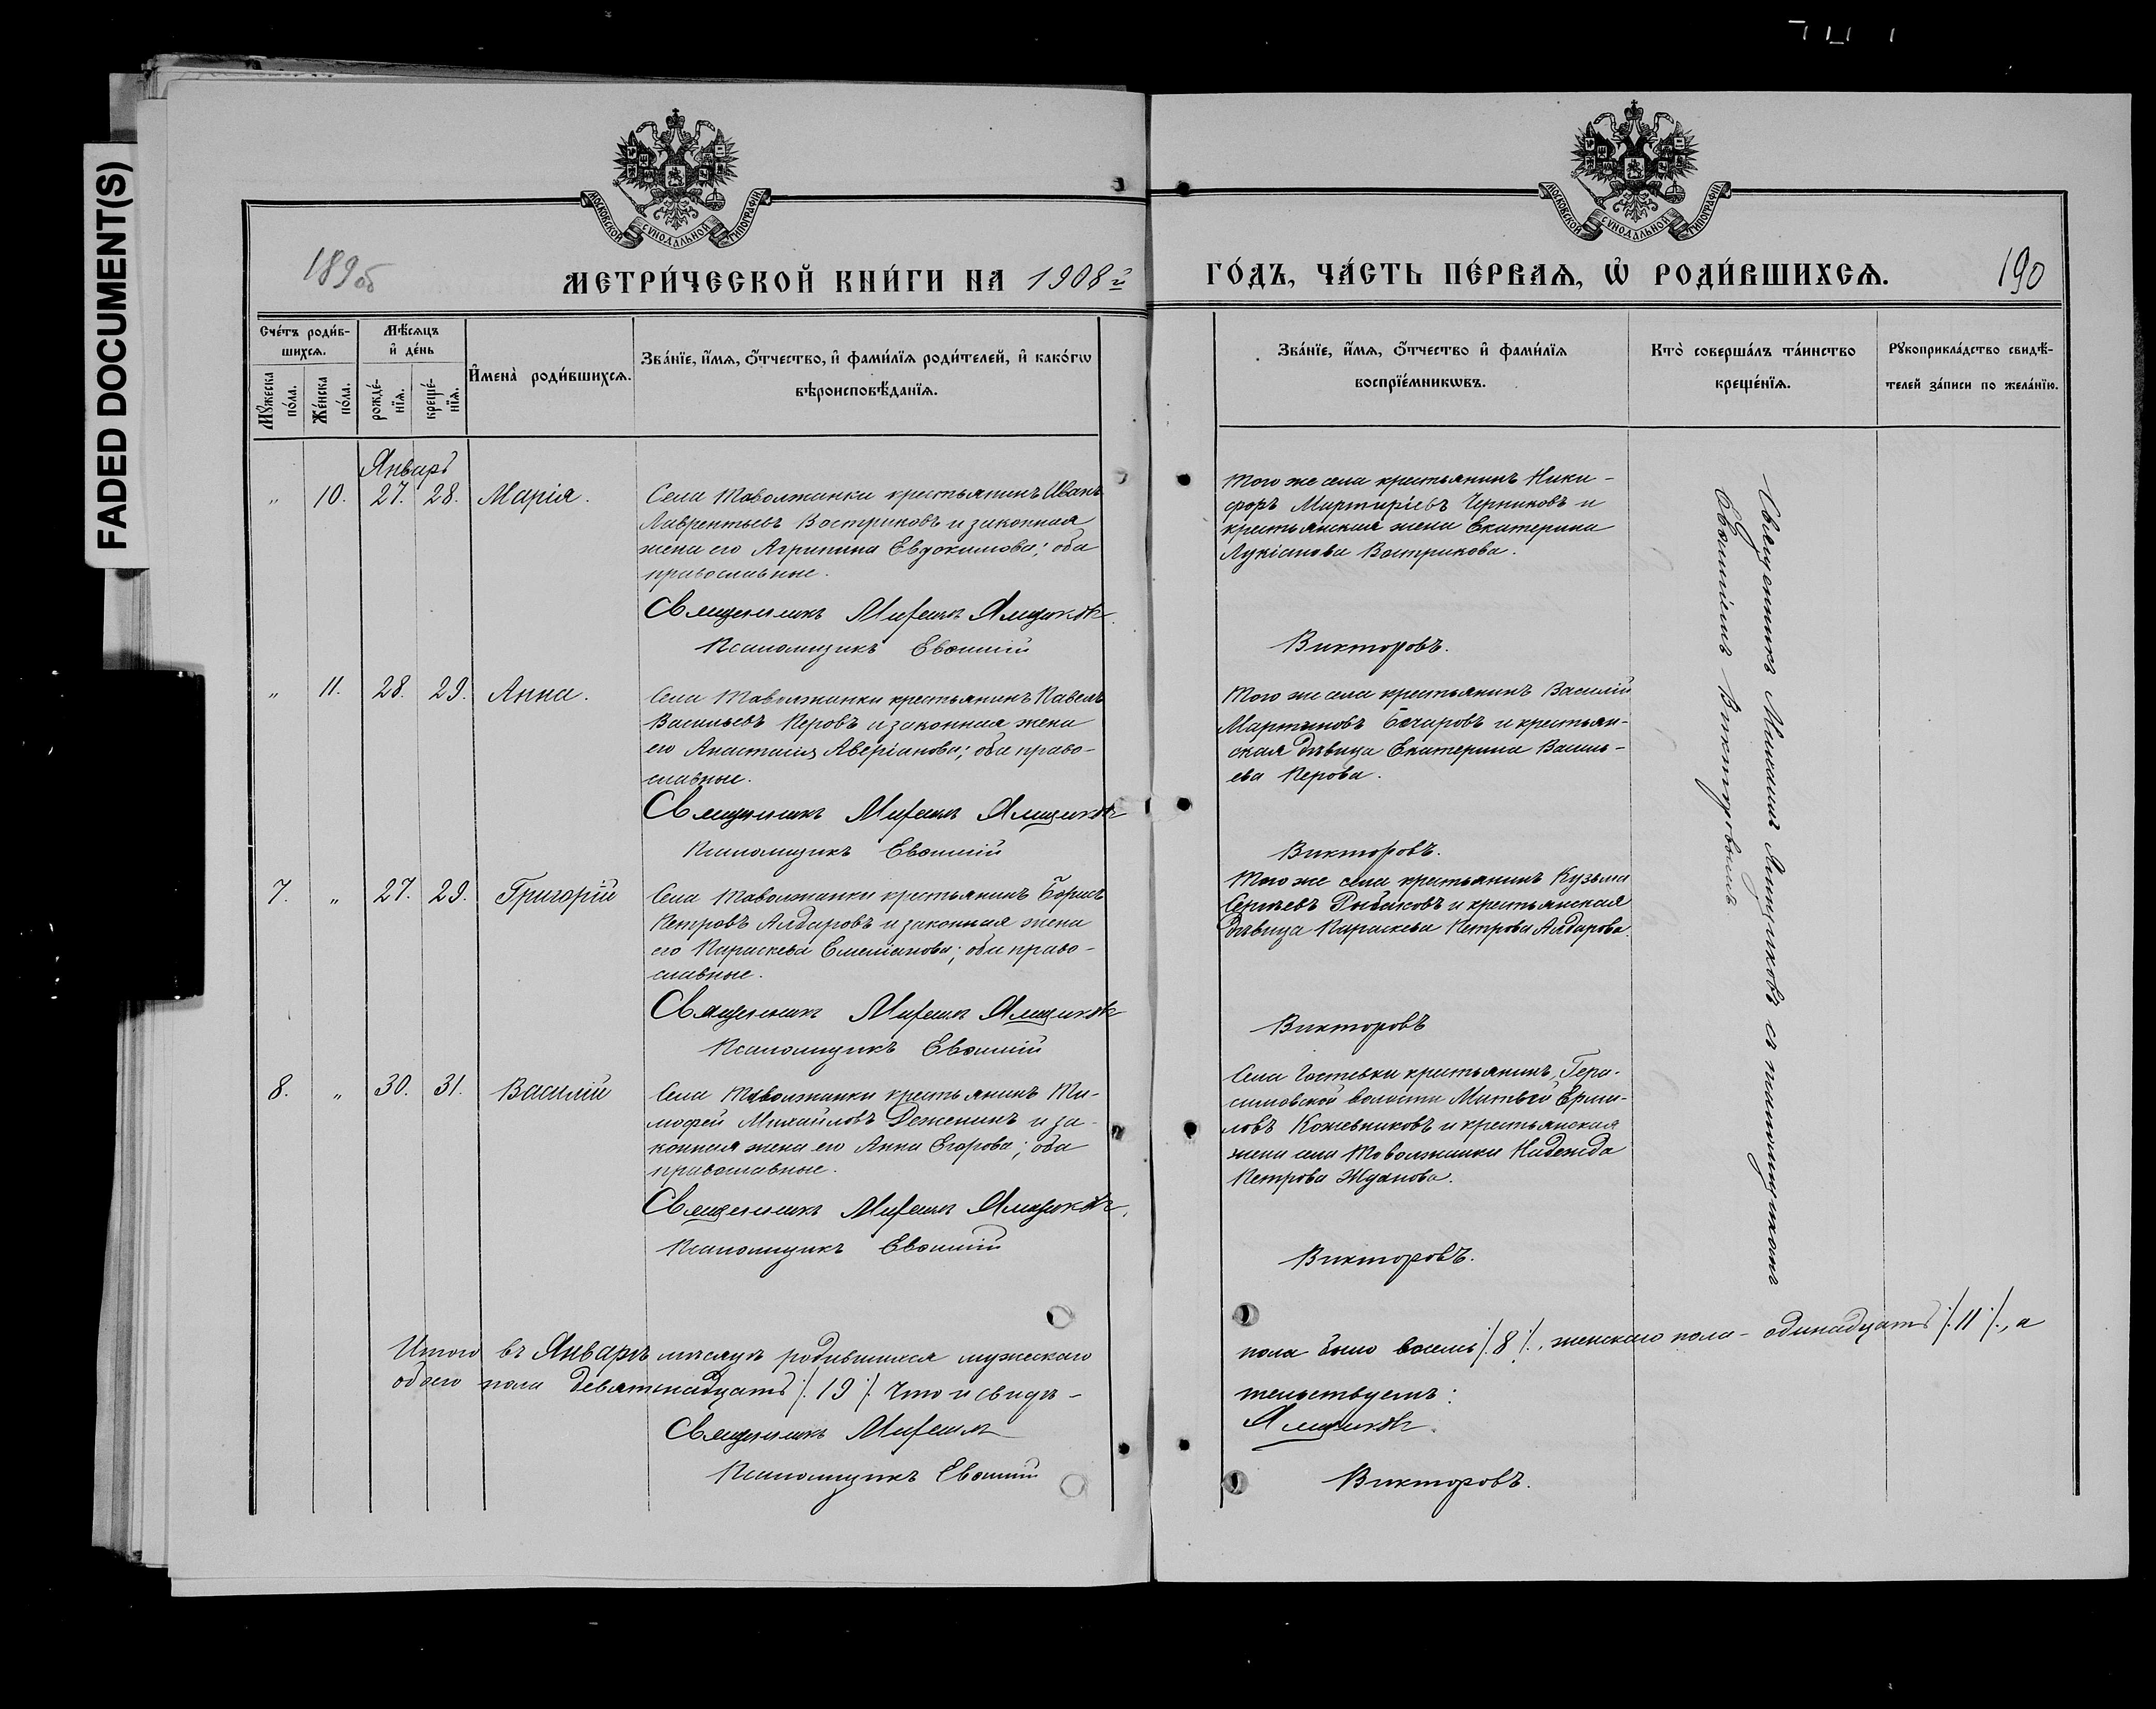 FADED DOCUMENT(S)
МОСКОВСКОЙ СѴНОДАЛЬНОЙ ТИПОГРАФІИ
МОСКОВСКОЙ СѴНОДАЛЬНОЙ ТИПОГРАФІИ
189об
МЕТРИ́ЧЕСКОЙ КНИ́ГИ НА 1908й
ГО́ДЪ, ЧА́СТЬ ПЕ́РВАѦ, Ѡ҆ РОДИ́ВШИХСѦ.
190
Сче́тъ роди́в-
шихсѧ.
Мꙋжеска
по́ла.
Же́нска
по́ла.
Мѣ́сѧцъ
и҆ де́нь
рожде́-
нїѧ.
креще́-
нїѧ.
И҆мена̀ роди́вшихсѧ.
Зва́нїе, и҆́мѧ, ѻ҆́тчество, и҆ фами́лїѧ роди́телей, и҆ како́гѡ
вѣроисповѣ́данїѧ.
Зва́нїе, и҆́мѧ, ѻ҆́тчество и҆ фами́лїѧ
воспрїе́мникѡвъ.
Кто̀ соверша́лъ та́инство
креще́нїѧ.
Рꙋкоприкла́дство свидѣ́-
телей за́писи по жела́нїю.
Январь
" 10. 27. 28. Марія.
Села Таволжанки крестьянинъ Иванъ
Лаврентьевъ Востриковъ и законная
жена его Агрипина Евдокимова; оба
православные.
Священникъ Михаилъ Ямщиковъ.
Псаломщикъ Евѳимій
Того же села крестьянинъ Ники-
форъ Мартиріевъ Черниковъ и
крестьянская жена Екатерина
Лукіанова Вострикова.
Викторовъ.
" 11. 28. 29. Анна.
Села Таволжанки крестьянинъ Павелъ
Васильевъ Перовъ и законная жена
его Анастасія Аверіанова; оба право-
славные.
Священникъ Михаилъ Ямщиковъ
Псаломщикъ Евѳимій
Того же села крестьянинъ Василій
Мартиновъ Бочаровъ и крестьян-
ская дѣвица Екатерина Василь-
ева Перова.
Викторовъ.
7. " 27. 29. Григорій
Села Таволжанки крестьянинъ Борисъ
Петровъ Алдаровъ и законная жена
его Параскева Емеліанова; оба право-
славные.
Священникъ Михаилъ Ямщиковъ
Псаломщикъ Евѳимій
Того же села крестьянинъ Кузьма
Сергѣевъ Рыбаковъ и крестьянская
дѣвица Параскева Петрова Алдарова.
Викторовъ
8. " 30. 31. Василій
Села Таволжанки крестьянинъ Ти-
мофей Михайловъ Деженинъ и за-
конная жена его Анна Егорова; оба
православные.
Священникъ Михаилъ Ямщиковъ.
Псаломщикъ Евѳимій
крестьянинъ, Гера-
симовской волости Матвѣй Ерми-
ловъ Кожевниковъ и крестьянская
жена села Таволжанки Надежда
Петрова Жданова.
Викторовъ.
Священникъ Михаилъ Ямщиковъ съ псаломщикомъ
Евѳиміемъ Викторовымъ
Итого въ Январѣ мѣсяцѣ родившихся мужескаго
пола было восемь /:8:/, женскаго пола – одинадцать /:11:/, а
обоего пола девятнадцать /:19:/. Что и свидѣ-
тельствуемъ:
Священникъ Михаилъ
Ямщиковъ.
Псаломщикъ Евѳимій
Викторовъ.